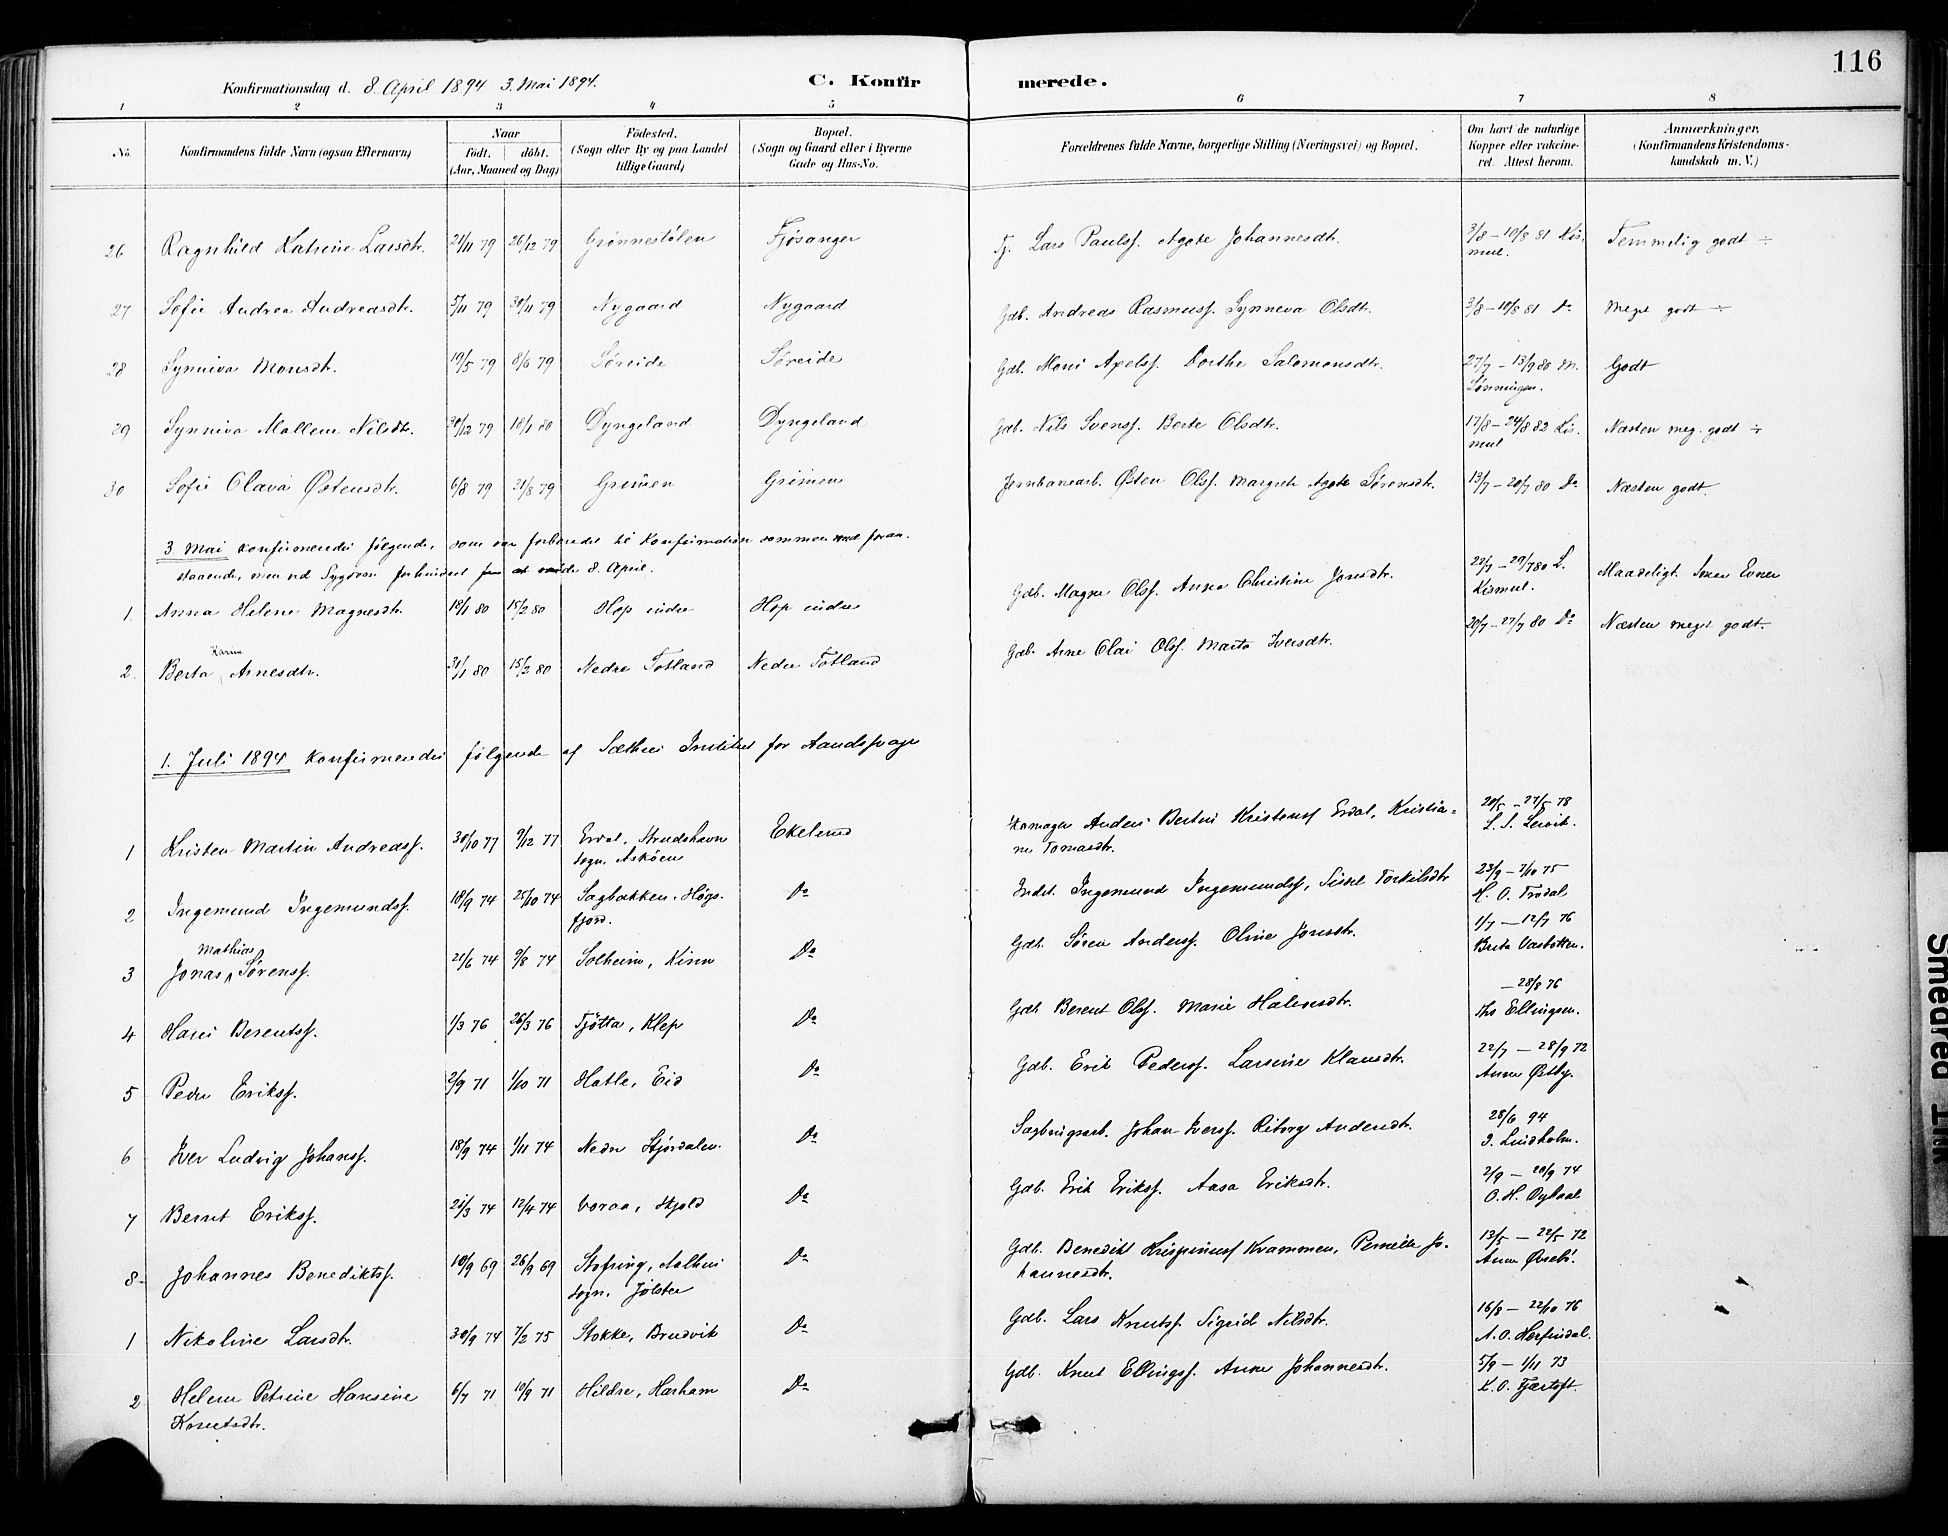 116
Konfirmationsdag d. 8. April 1894 3. Mai 1894.
C. Konfirmerede.
1 2 3 4 5 6 7 8
No.
Konfirmandens fulde Navn (ogsaa Efternavn)
Naar
födt. döbt.
(Aar, Maaned og Dag)
Födested.
(Sogn eller By og paa Landet
tillige Gaard)
Bopæl.
(Sogn og Gaard eller i Byerne
Gade og Hus-No.
Forældrenes fulde Navne, borgerlige Stilling (Næringsvei) og Bopæl.
Om havt de naturlige
Kopper eller vakcine-
ret. Attest herom.
Anmærkninger.
(Konfirmandens Kristendoms-
kundskab m. V.)
26 Ragnhild Katrine Larsdtr. 21/11 79 26/12 79 Grønnestølen Fjøsanger Fj. Lars Paulss. Agate Johannesdtr. 3/8 – 10/8 81 Kis-
mul. Temmelig godt ÷
27 Sofie Andrea Andreasdtr. 5/11 79 30/11 79 Nygaard Nygaard Gdb. Andreas Rasmuss. Synneva Olsdtr. 3/8 – 10/8 81 Do Meget godt ÷
28 Synniva Monsdtr. 19/5 79 8/6 79 Søreide Søreide Gdb. Mons Apelss. Dorthe Salomonsdtr. 27/7 – 13/9 80 M.
Lønningen. Godt
29 Synniva Mallene Nilsdtr. 30/12 79 18/1 80 Dyngeland Dyngeland Gdb. Nils Svenss. Berte Olsdtr. 17/8 – 24/8 82 Kis-
mul Næsten meg. godt ÷
30 Sofie Olava Østensdtr. 6/8 79 31/8 79 Grimen Grimen Jernbanearb. Østen Olss. Margrete Agate Sørensdtr. 13/7 – 20/7 80 Do Næsten godt.
3 Mai konfirmeredes følgende, som var forberedet til Konfirmation sammen med foran-
staaende, men ved Sygdom forhindret 8. April.
1. Anna Helene Magnesdtr. 18/1 80 15/2 80 Hop indre Hop indre Gdb. Magne Olss. Anna Christine Jonsdtr. 22/7 – 29/7 80 L.
Kismul. Maadeligt. Evner
2. Berta Karina Arnesdtr. 31/1 80 15/2 80 Nedre Totland Nedre Totland Gdb. Arne Olai Olss. Marta Iversdtr. 20/7 – 27/7 80 Do Næsten meget godt.
1. Juli 1894 konfirmeredes følgende af Sæthres Institut for Aandssvage
1 Kristen Martin Andreass. 30/10 77 9/12 77 Erdal, Strudshavn
sogn, Askøen Ekelund Anders Bertin Kristenss Erdal, Kristia-
ne Tomasdtr. 20/5 – 27/5 78
L. S. Lervik.
2 Ingemund Ingemundss. 18/9 74 25/10 74 Sagbakken, Høgs-
fjord. Do Indst. Ingemund Ingemundss, Siskel Torkilsdtr 23/9 – 7/10 75
H. O. Frodal
3 Jonas Mathias Sørenss. 21/6 74 9/8 74 Solheim, Kinn Do Gdb. Søren Anderss. Oline Jonsdtr. 1/7 – 12/7 76
Brita Vasbotten.
4 Hans Berentss. 1/3 76 26/3 76 Tjøtta, Klep Do Gdb Berent Olss. Marie Halvorsdtr. – 28/8 76
Ths Ellingsen.
5 Peder Erikss. 2/9 71 1/10 71 Hatle, Eid Do Gdb. Erik Pederss. Larsine Klausdtr. 22/7 – 28/9 72
Anne Østby.
6 Iver Ludvig Johanss. 18/9 74 1/11 74 Nedre Stjørdalen. Do Sagbrugsarb. Johan Iverss. Riborg Andersdtr. 28/6 94
J. Lindholm.
7 Bernt Erikss. 21/3 74 12/4 74 Voraa, Skjold Do Gdb. Erik Erikss. Aasa Eriksdtr. 2/9 – 20/9 74
O. H. Opsaal
8 Johannes Benediktss. 10/9 69 26/9 69 Stofring, Aalhus
sogn, Jølster Do Gdb. Benedikt Krispinuss Kvammen, Pernille Jo-
hannesdtr. 13/5 – 22/5 72
Anne Øvsebø.
1 Nikoline Larsdtr. 30/9 74 7/2 75 Stokke, Bruvik Do Gdb. Lars Knutss. Sigrid Nilsdtr. 16/8 – 22/10 76
A. O. Herfindal.
2 Helene Petrine Hansine
Knutsdtr. 6/7 71 10/9 71 Hildre, Harham Do Gdb. Knut Ellingss. Anne Johannesdtr. 5/9 – 1/11 73
K. O. Fjærtoft.